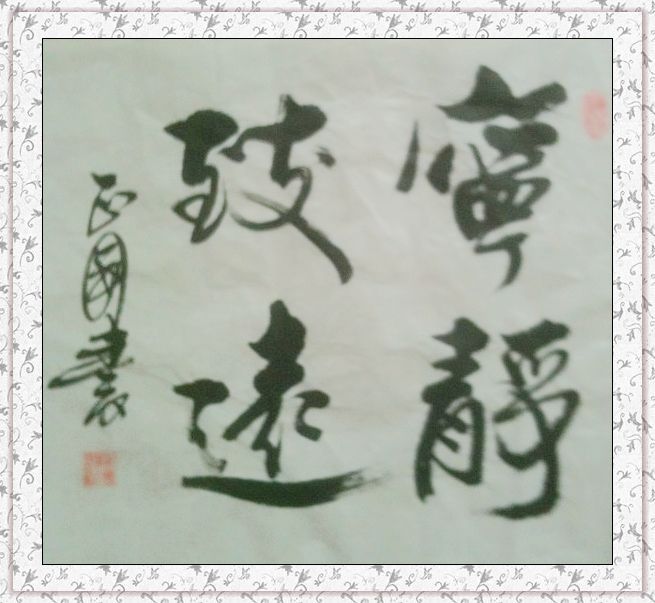 寧靜
致遠
正國書